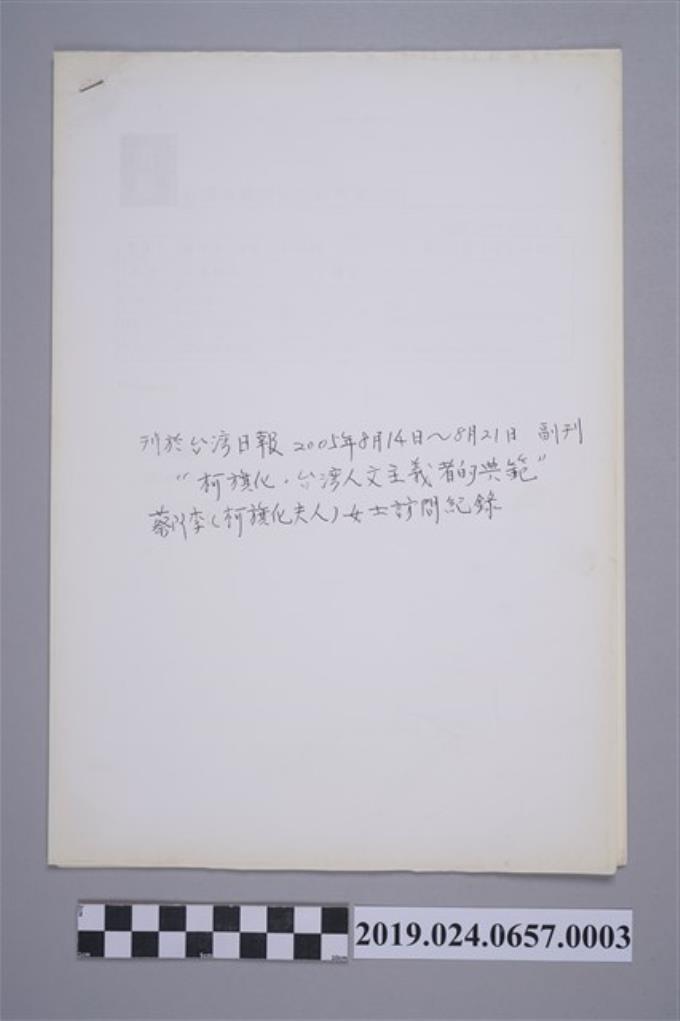 刊於台湾日報 2005年8月14日~8月21日 副刊
"柯旗化·台湾人文主義者的典範"
蔡阿李(柯旗化夫人)女士訪問紀錄
2019.024.0657.0003